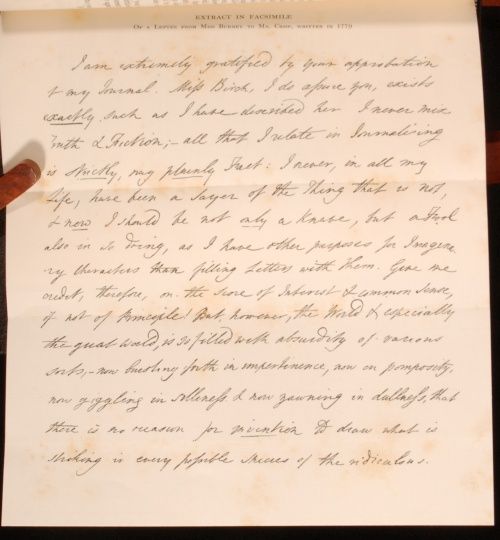 EXTRACT IN FACSIMILE
Of a Letter from Miss Burney to Mr. Crisp, written in 1779
I am extremely gratified by your approbation
of my Journal. Miss Birch, I do assure you, exists
exactly such as I have described her. I never mix
Truth & Fiction;- all that I relate in Journalising
is strictly, nay plainly Fact: I never, in all my
Life, have been a sayer of the Thing that is not,
& now I should be not only a Knave, but a Fool
also in so doing, as I have other purposes for Imagina
ry Characters than filling Letters with them. Give me
credit, therefore, on the score of Interest & common sense,
if not of Principle! But, however, the World, & especially
the great world, is so filled with absurdity of various
sorts,- now bursting forth in impertinence, now in pomposity,
now giggling in silliness, & now yawning in dullness, that
there is no reason for invention to draw what is
striking in every possible species of the ridiculous.